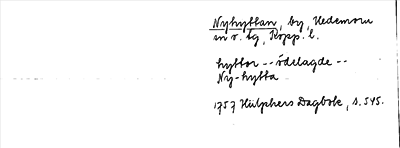 Nyhyttan, by, Hedemora
sn o. tg, Kopp. l.
hyttor -- ödelagde --
Ny-hytta
1757 Hülphers Dagbok, s. 545.